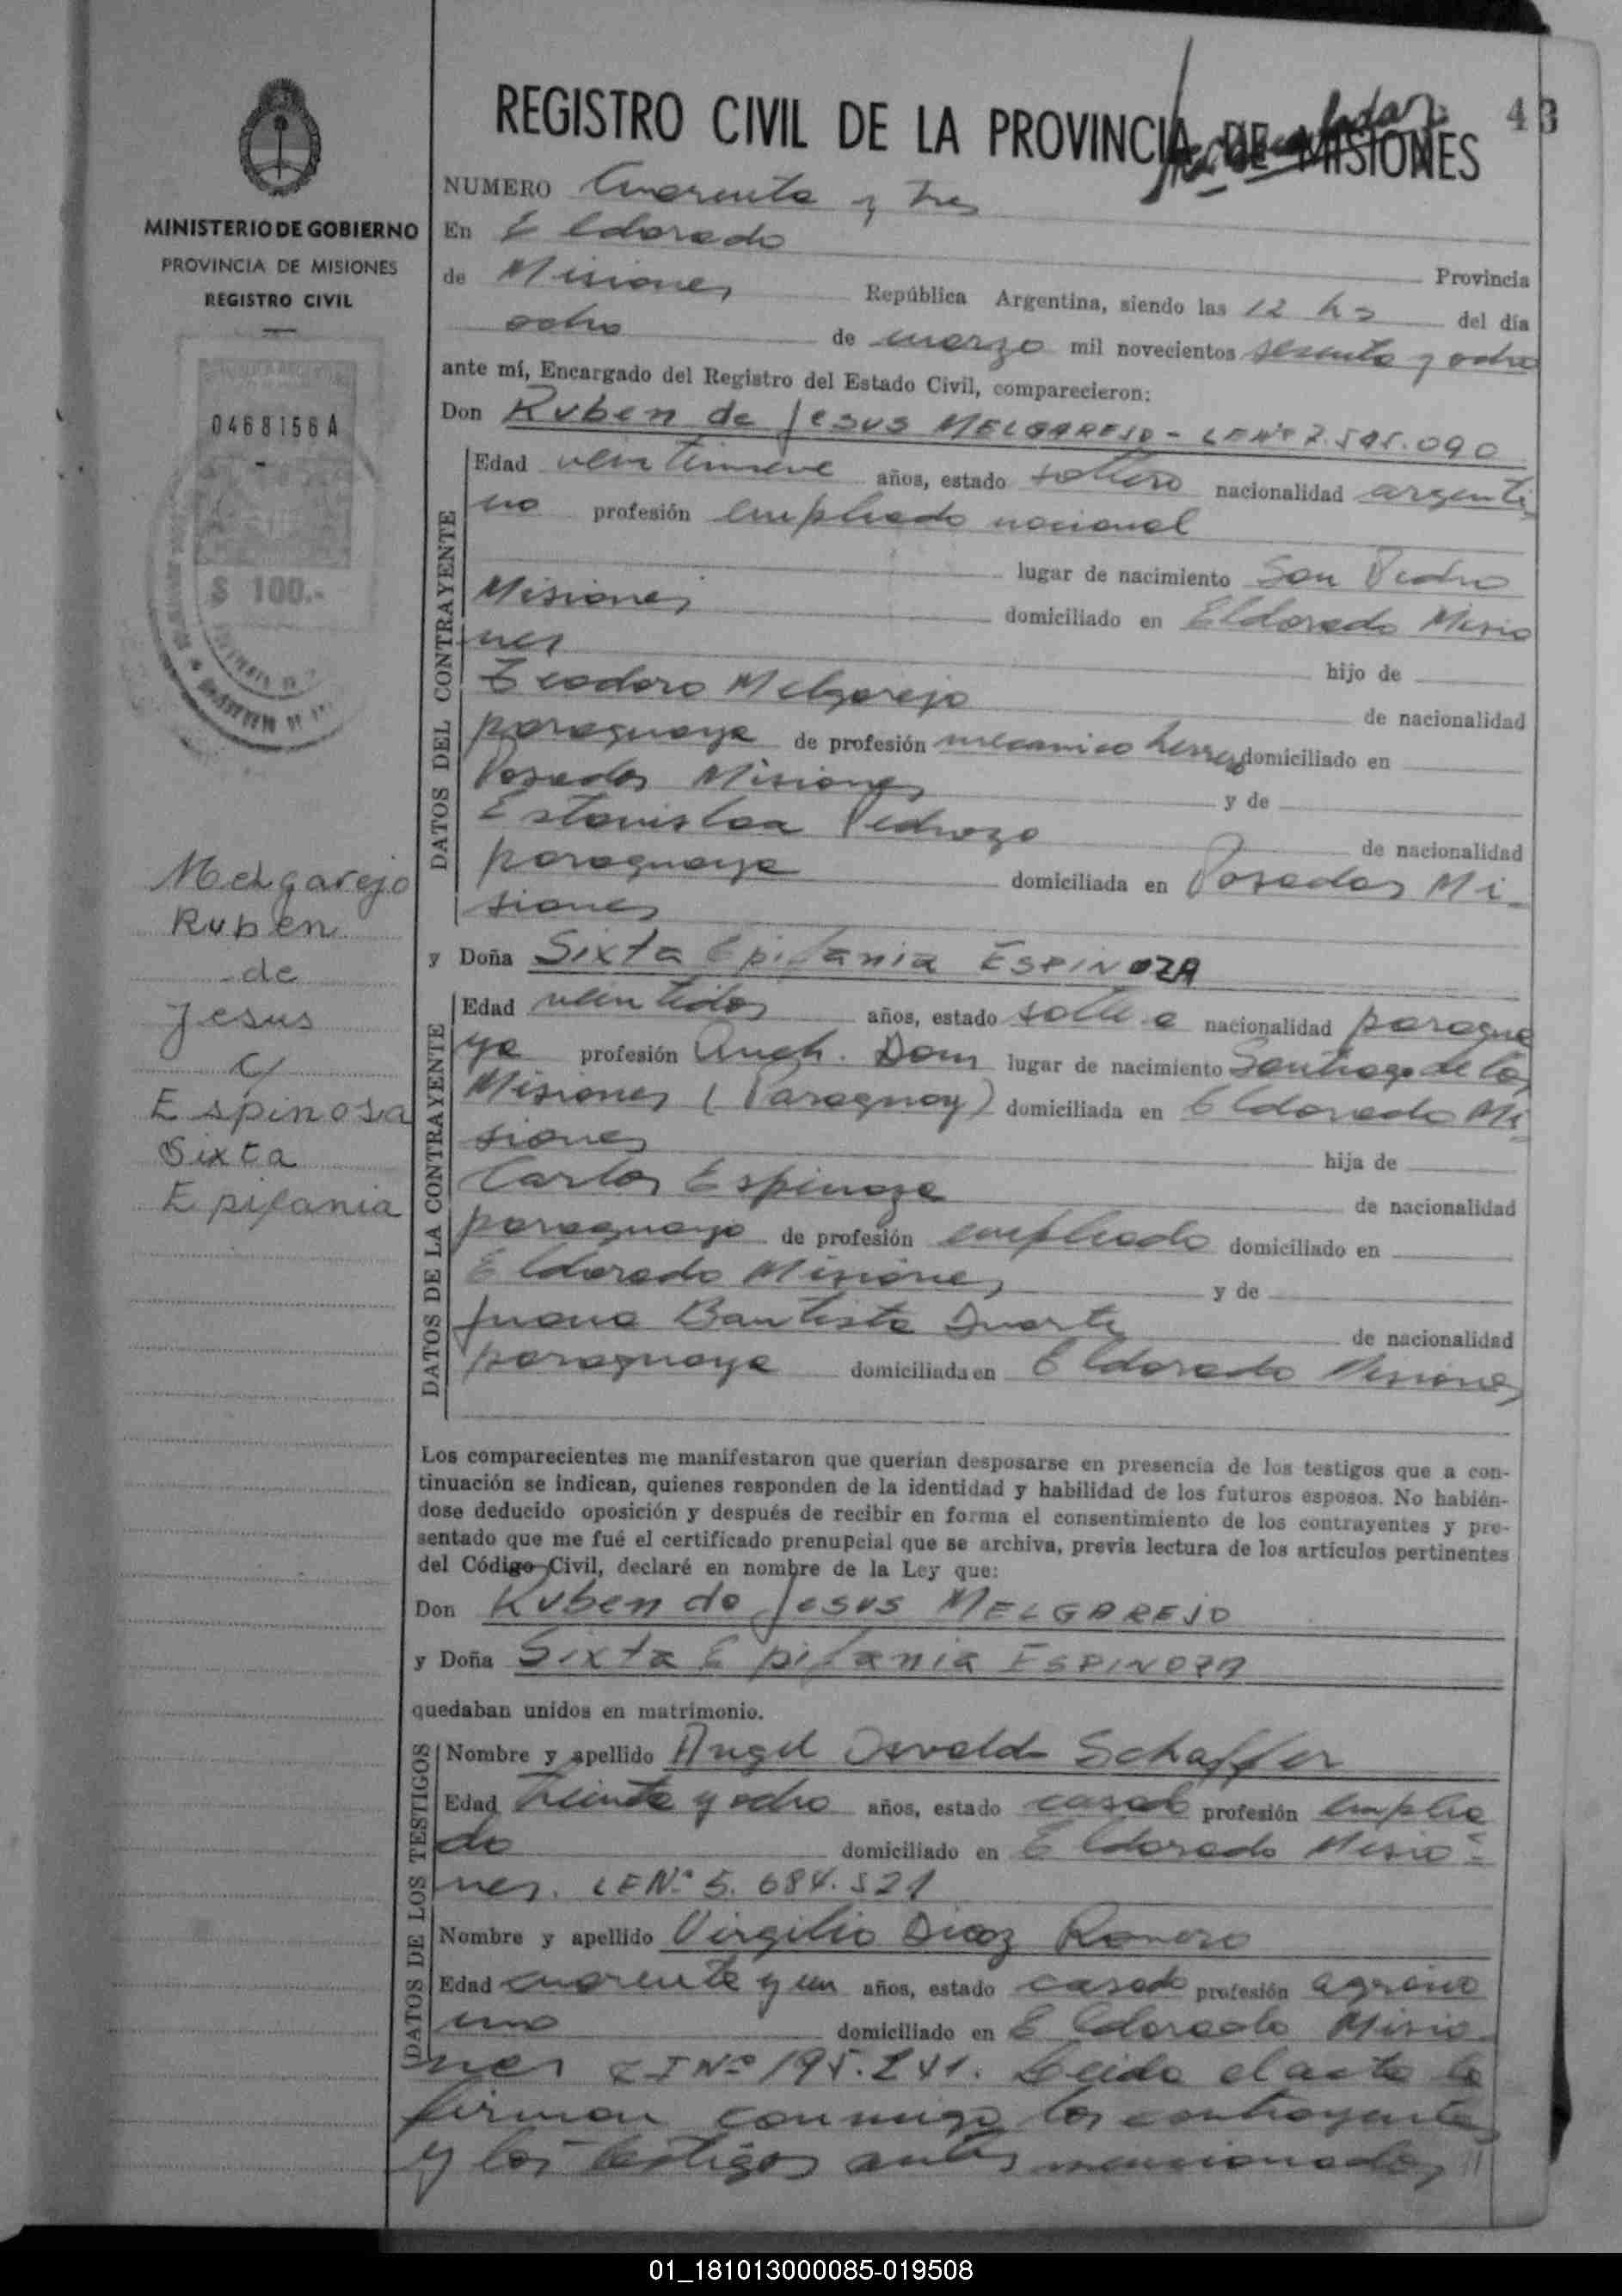 REGISTRO CIVIL DE LA PROVINCIA DE MISIONES
43
MINISTERIO DE GOBIERNO
PROVINCIA DE MISIONES
REGISTRO CIVIL
0468156A
$ 100.-
Melgarejo
Ruben
de
Jesus
c/
Espinosa
Sixta
Epifania
NUMERO Cuarenta y Tres
En Eldorado
Provincia
de Misiones República Argentina, siendo las 12 hs del día
ocho de marzo mil novecientos sesenta y ocho
ante mí, Encargado del Registro del Estado Civil, comparecieron:
Don Ruben de Jesus MELGAREJO - LE Nº 7.545.090
DATOS DEL CONTRAYENTE
Edad veintinueve años, estado soltero nacionalidad argenti
no profesión empleado nacional
lugar de nacimiento San Pedro
Misiones domiciliado en Eldorado Misio
nes hijo de
Teodoro Melgarejo de nacionalidad
paraguaya de profesión mecanico herrero domiciliado en
Posadas Misiones y de
Estanislaa Pedrozo de nacionalidad
paraguaya domiciliada en Posadas Mi-
siones
y Doña Sixta Epifania ESPINOZA
DATOS DE LA CONTRAYENTE
Edad veintidos años, estado soltera nacionalidad paragua
ya profesión Queh. Dom lugar de nacimiento Santiago de las
Misiones (Paraguay) domiciliada en Eldorado Mi
siones hija de
Carlos Espinoza de nacionalidad
paraguayo de profesión empleado domiciliado en
Eldorado Misiones y de
Juana Bautista Duarte de nacionalidad
paraguaya domiciliada en Eldorado Misiones
Los comparecientes me manifestaron que querían desposarse en presencia de los testigos que a con-
tinuación se indican, quienes responden de la identidad y habilidad de los futuros esposos. No habién-
dose deducido oposición y después de recibir en forma el consentimiento de los contrayentes y pre-
sentado que me fué el certificado prenupcial que se archiva, previa lectura de los artículos pertinentes
del Código Civil, declaré en nombre de la Ley que:
Don Ruben de Jesus MELGAREJO
y Doña Sixta Epifania ESPINOZA
quedaban unidos en matrimonio.
DATOS DE LOS TESTIGOS
Nombre y apellido Angel Osvaldo Schaffer
Edad treinta y ocho años, estado casado profesión emplea
do domiciliado en Eldorado Misio-
nes. LE Nº 5.684.521
Nombre y apellido Virgilio Diaz Romero
Edad cuarenta y un años, estado casado profesión agrono
mo domiciliado en Eldorado Misio-
nes CI Nº 195.241. Leida el acta la
firman conmigo los contrayentes
y los testigos antes mencionados
01_181013000085-019508